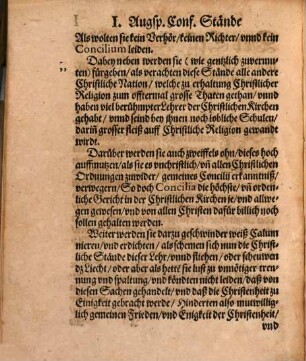 I. Augsp. Conf. Stände
Als wolten sie kein Verhör/ keinen Richter/ vnnd kein
Concilium leiden.
Daben neben werden sie (wie gentzlich zuvermu-
ten) fürgeben/ als verachten diese Stände alle andere
Christliche Nation/ welche zu erhaltung Christlicher
Religion zum offtermal grosse Thaten gethan/ vnnd
haben viel berühmpter Lehrer der Christlichen Kirchen
gehabt/ vnnd seind bey jhnen noch löbliche Schulen/
dariñ grosser fleiß auff Christliche Religion gewandt
wirdt.
Darüber werden sie auch zweiffels ohn/ dieses hoch
auffmutzen/ als sie es vnchristlich/ vñ allen Christlichen
Ordnungen zuwider/ gemeines Concilij erkanntniß/
verwegern/ So doch Concilia die höchste/ vñ ordenn-
liche Gericht in der Christlichen Kirchen je/ vnd allwe-
gen gewesen/ vnd von allen Christen dafür billich noch
sollen gehalten werden.
Weiter werden sie dartzu geschwinder weiß Calum
nieren/ vnd erdichten/ als schemen sich nun die Christ-
liche Stände dieser Lehr/ vnnd fliehen/ oder scheuwen
dz Liecht/ oder aber als hette sie lust zu vnnötiger tren-
nung vnd spaltung/ vnd köndten nicht leiden/ daß von
diesen Sachen gehandelt/ vnd daß die Christenheit zu
Einigkeit gebracht werde/ Hinderten also mutwillig-
lich gemeinen Frieden/ vnd Enigkeit der Christenheit/
vnd